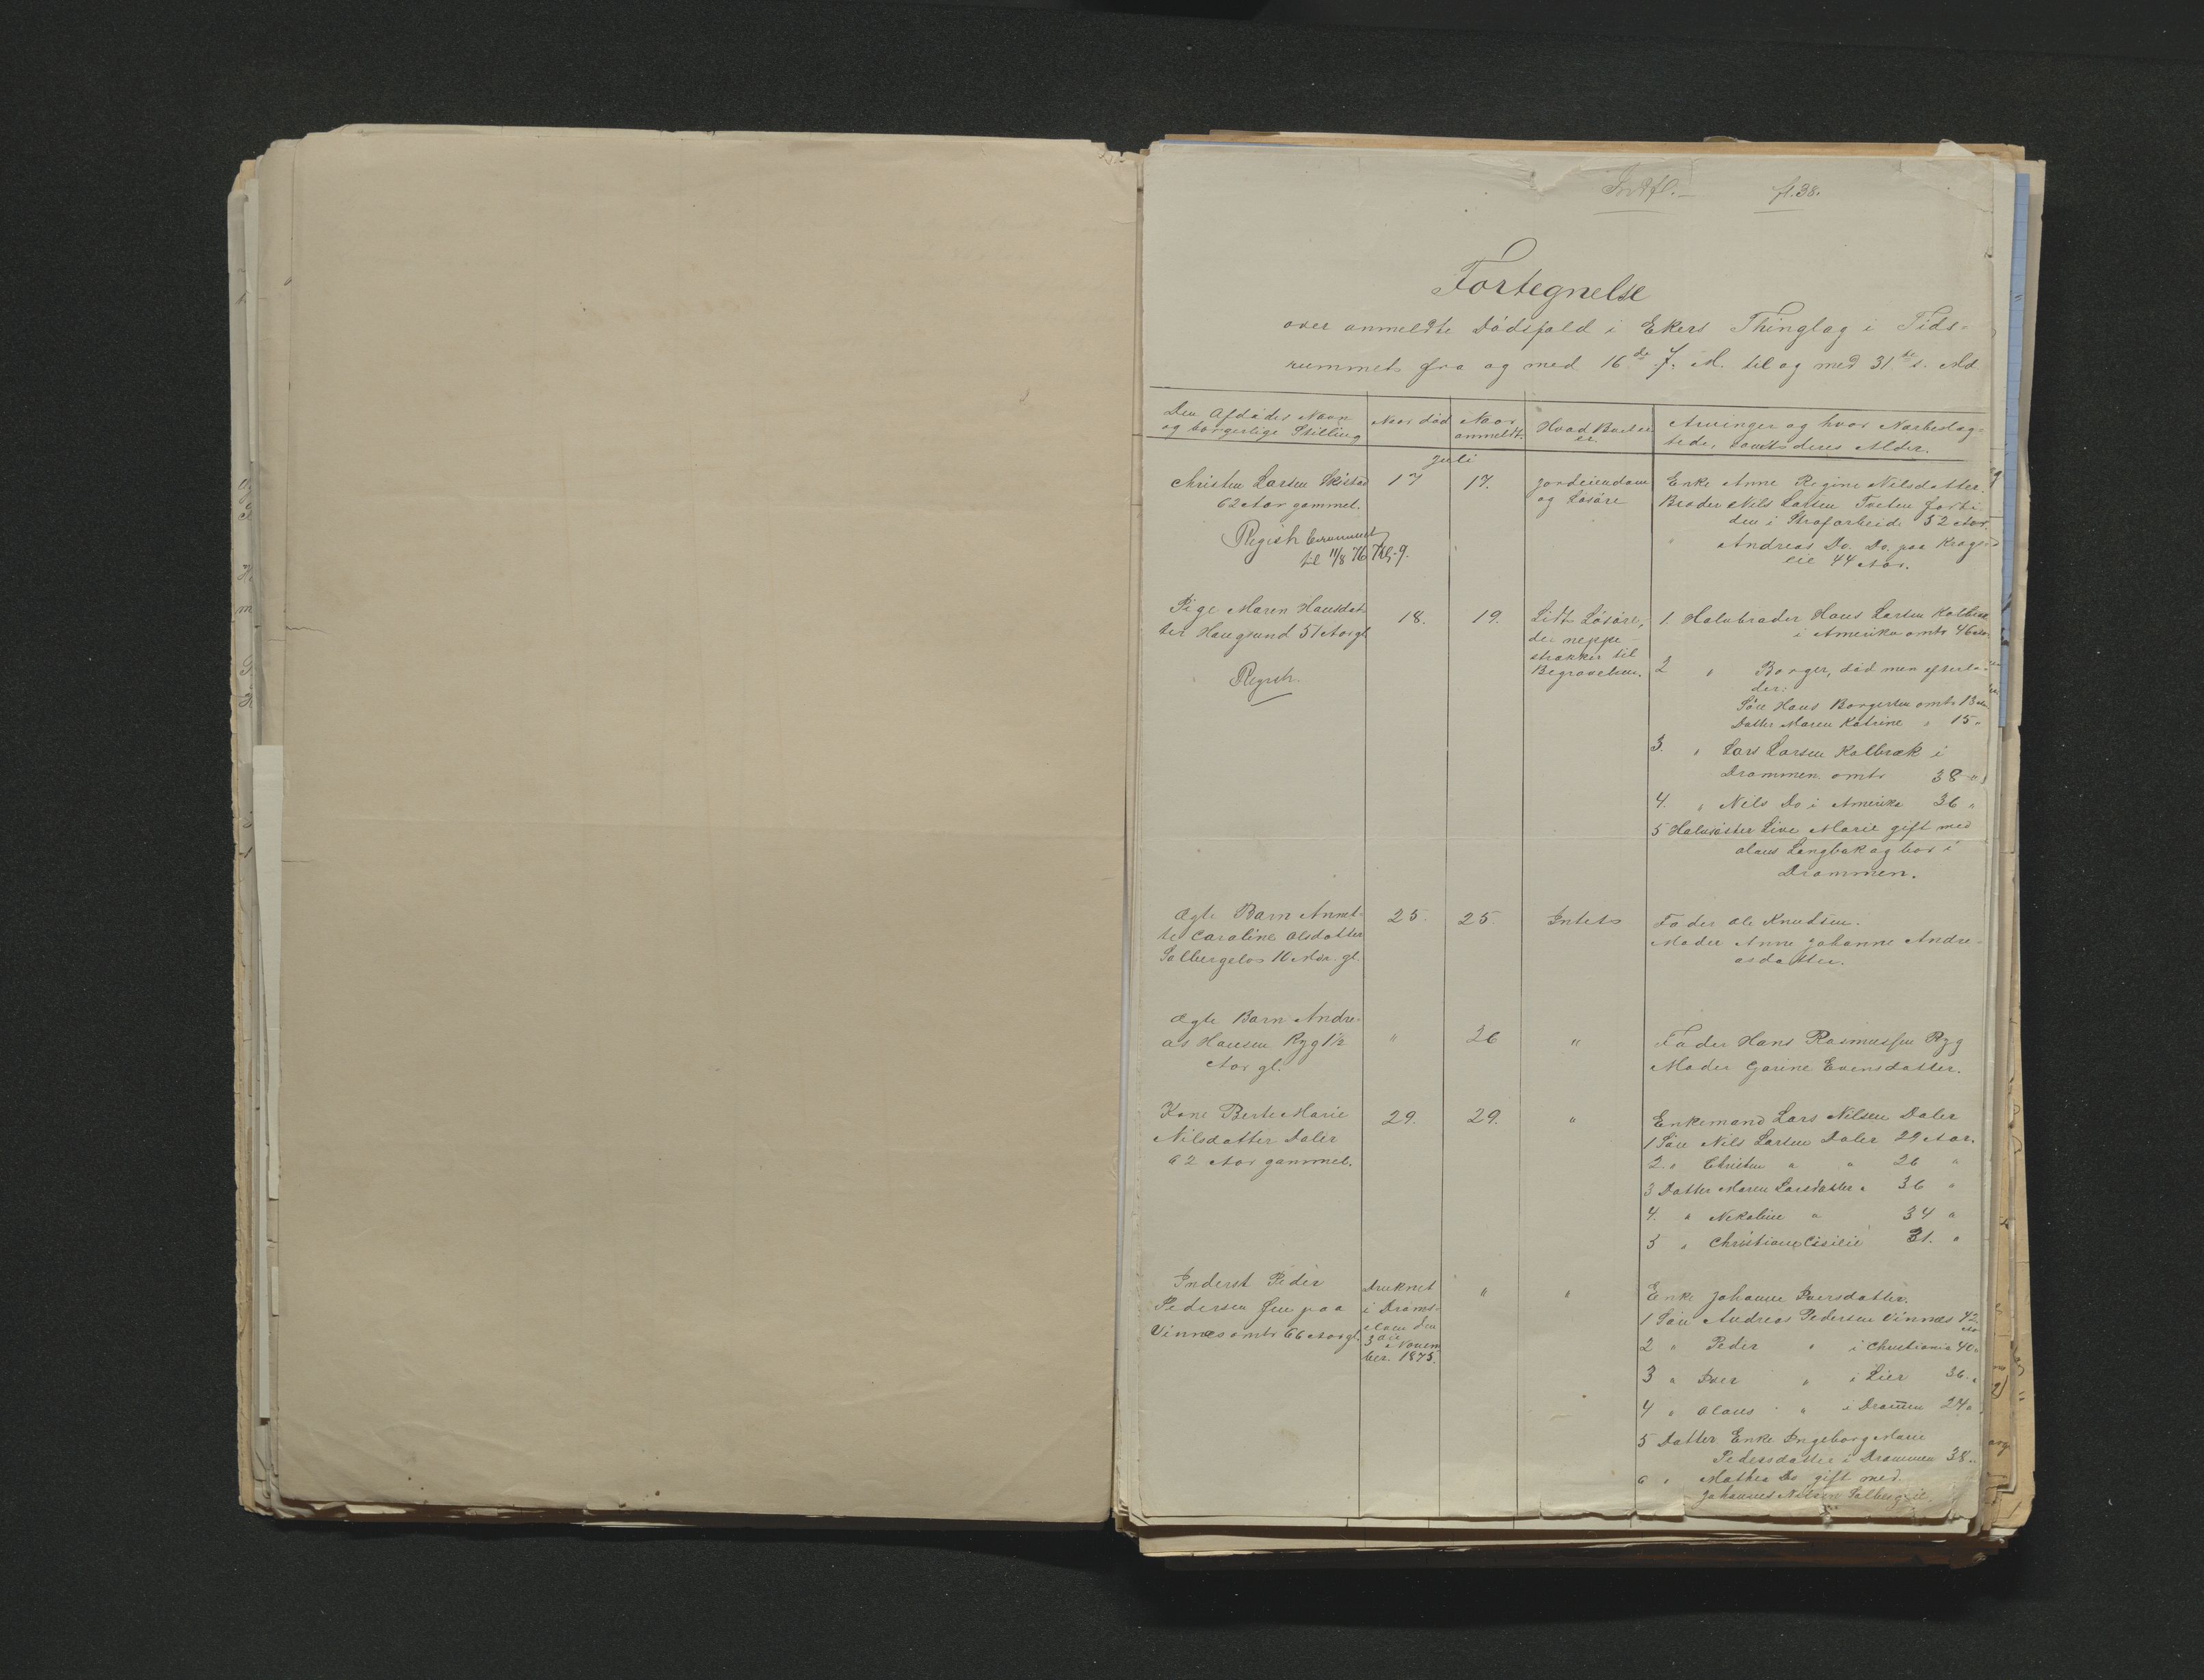 fl. 38.
Fortegnelse
over anmeldte Dödsfald i Ekers Thinglag i Tids-
rummet fra og med 16de f. M. til og med 31te s. Md
Den Afdödes Navn
og borgerlige Stilling
Naar död
Naar
anmeldt.
Hvad Boet er
er.
Arvinger og hvor Nærbeslæg-
tede, samt deres Alder.
Juli
Christen Larsen
62 Aar gammel.
17
17.
Jordeiendom
og Lösöre
Enke Anne Regine Nilsdatter.
Broder Nils Larsen Tveten forti-
den i Strafarbeide 52 Aar.
Andreas Do. Do. paa Krager
eie 44 Aar.
Regist.
til 11/8 76
Pige Maren Hansdat-
ter Haugsund 51 Aar gl.
Regist.
18.
19.
Lidt Lösöre,
der neppe
strækker til
Begravelsen.
1. Halvbroder Hans Larsen Kolbræk
i Amerika omtr 46 Aar
2 " Borger, död men efterla-
der:
Sön Hans Borgersen omtr 18 Aar
Datter Maren Katrine " 15 "
3. " Lars Larsen Kolbræk i
Drammen omtr 38 "
4. " Nils Do i Amerika 36 "
5 Halvsöster Live Marie gift med
Olaus Langbak og bor i
Drammen.
Ægte Barn Annet-
te Caroline Olsdatter
Solbergelos 10 Mdr. gl.
25.
25.
Intet
Fader Ole Knudsen.
Moder Anne Johanne Andre-
asdatter.
Ægte Barn Andre-
as Hansen Ryg 1½
Aar gl.
"
26
"
Fader Hans Rasmussen Ryg
Moder Gorine Evensdatter.
Kone Berte Marie
Nilsdatter Daler
62 Aar gammel.
29.
29.
"
Enkemand Lars Nilsen Daler
1 Sön Nils Larsen Daler 29 Aar.
2. " Christen " " 26 "
3 Datter Maren Larsdatter " 36 "
4. " Nikoline " 34 "
5 " Christiane Cisilie 31. "
Inderst Peder
Pedersen Jen paa
Vinnes omtr 66 Aar gl.
druknet
i Drams-
elven den
3die Novem
ber 1875.
"
"
Enke Johanne Iversdatter.
1 Sön Andreas Pedersen Vinnes 42
Aar
2 " Peder " i Christiania 40 "
3 " Iver " i Lier 36. "
4 " Olaus " i Dramen 24 "
5 Datter Enke Ingeborg Marie
Pedersdatter i Drammen 38 "
6 " Mathea Do gift med
Johannes Nilsen Solbergeie